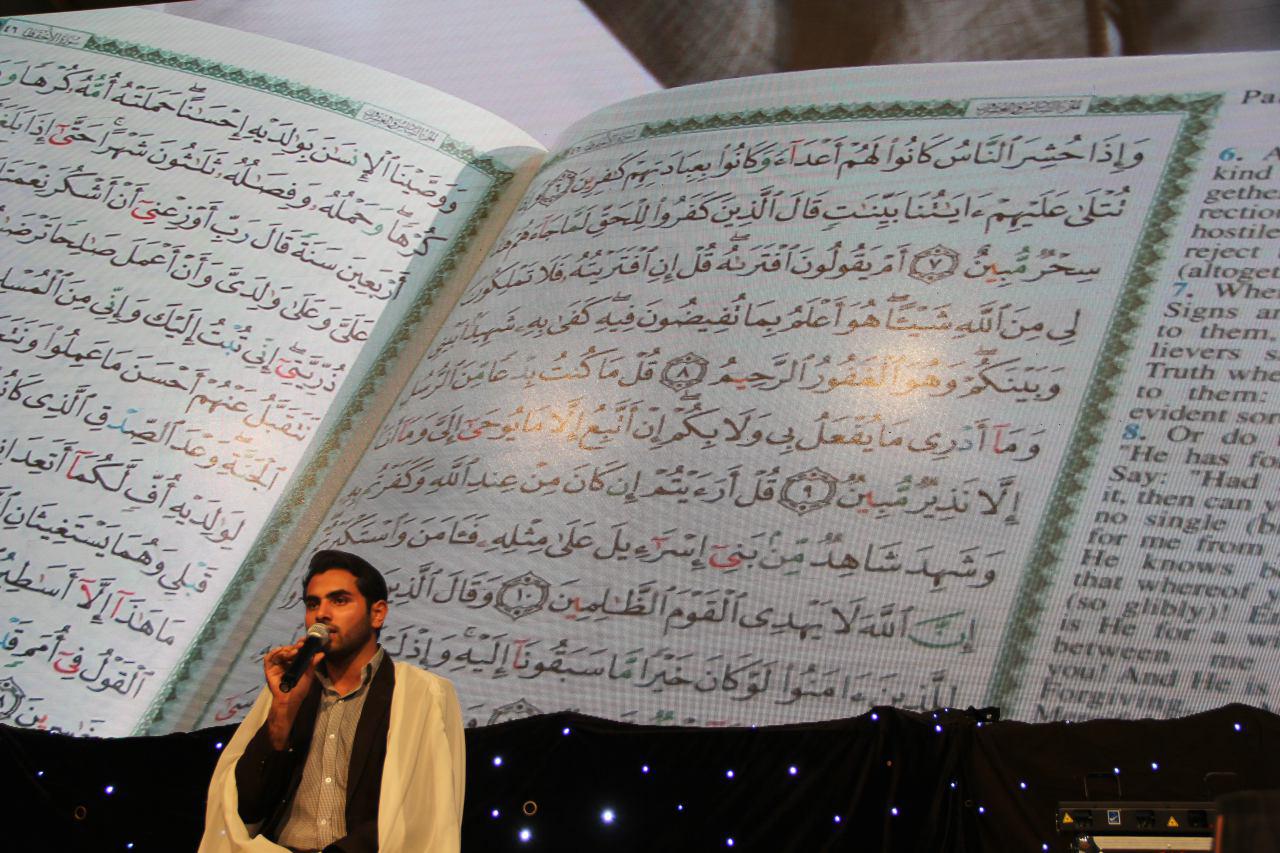 وَإِذَا حُشِرَ ٱلنَّاسُ كَانُوا۟ لَهُمْ أَعْدَآءً وَكَانُوا۟ بِعِبَادَتِهِمْ كَٰفِرِينَ ٦
تُتْلَىٰ عَلَيْهِمْ ءَايَٰتُنَا بَيِّنَٰتٍ قَالَ ٱلَّذِينَ كَفَرُوا۟ لِلْحَقِّ لَمَّا جَآءَهُمْ
سِحْرٌ مُّبِينٌ ٧ أَمْ يَقُولُونَ ٱفْتَرَىٰهُ ۖ قُلْ إِنِ ٱفْتَرَيْتُهُۥ فَلَا تَمْلِكُونَ
لِى مِنَ ٱللَّهِ شَيْـًٔا ۖ هُوَ أَعْلَمُ بِمَا تُفِيضُونَ فِيهِ ۖ كَفَىٰ بِهِۦ شَهِيدًۢا
وَبَيْنَكُمْ ۖ وَهُوَ ٱلْغَفُورُ ٱلرَّحِيمُ ٨ قُلْ مَا كُنتُ بِدْعًا مِّنَ ٱلرُّسُلِ
وَمَآ أَدْرِى مَا يُفْعَلُ بِى وَلَا بِكُمْ ۖ إِنْ أَتَّبِعُ إِلَّا مَا يُوحَىٰٓ إِلَىَّ وَمَآ أَنَا۠
إِلَّا نَذِيرٌ مُّبِينٌ ٩ قُلْ أَرَءَيْتُمْ إِن كَانَ مِنْ عِندِ ٱللَّهِ وَكَفَرْتُم بِهِۦ
وَشَهِدَ شَاهِدٌ مِّنۢ بَنِىٓ إِسْرَٰٓءِيلَ عَلَىٰ مِثْلِهِۦ فَـَٔامَنَ وَٱسْتَكْبَرْتُمْ
إِنَّ ٱللَّهَ لَا يَهْدِى ٱلْقَوْمَ ٱلظَّٰلِمِينَ ١٠ وَقَالَ ٱلَّذِينَ
لِلَّذِينَ ءَامَنُوا۟ لَوْ كَانَ خَيْرًا مَّا سَبَقُونَآ إِلَيْهِ ۚ وَإِذْ لَمْ
سُورَةُ الأَحْقَافِ ٤٦
وَوَصَّيْنَا ٱلْإِنسَٰنَ بِوَٰلِدَيْهِ إِحْسَٰنًا ۖ حَمَلَتْهُ أُمُّهُۥ كُرْهًا
كُرْهًا ۖ وَحَمْلُهُۥ وَفِصَٰلُهُۥ ثَلَٰثُونَ شَهْرًا ۚ حَتَّىٰٓ إِذَا بَلَغَ
أَرْبَعِينَ سَنَةً قَالَ رَبِّ أَوْزِعْنِىٓ أَنْ أَشْكُرَ نِعْمَتَكَ
عَلَىَّ وَعَلَىٰ وَٰلِدَىَّ وَأَنْ أَعْمَلَ صَٰلِحًا تَرْضَىٰهُ
ذُرِّيَّتِىٓ ۖ إِنِّى تُبْتُ إِلَيْكَ وَإِنِّى مِنَ ٱلْمُسْلِمِينَ
نَتَقَبَّلُ عَنْهُمْ أَحْسَنَ مَا عَمِلُوا۟
ٱلْجَنَّةِ ۖ وَعْدَ ٱلصِّدْقِ ٱلَّذِى كَانُوا۟
لِوَٰلِدَيْهِ أُفٍّ لَّكُمَآ أَتَعِدَانِنِىٓ
قَبْلِى وَهُمَا يَسْتَغِيثَانِ
مَا هَٰذَآ إِلَّآ أَسَٰطِيرُ
ٱلْقَوْلُ فِىٓ أُمَمٍ قَدْ
6. A
kind
gethe
rection
hostile
reject
(altoget
7. Whe
Signs an
to them,
lievers s
Truth whe
to them:
evident sor
8. Or do
"He has fo
Say: "Had
it, then can y
no single (b
for me from
He knows b
that whereof y
(so glibly)! E
is He for a w
between me
you! And He is
Forgiving,